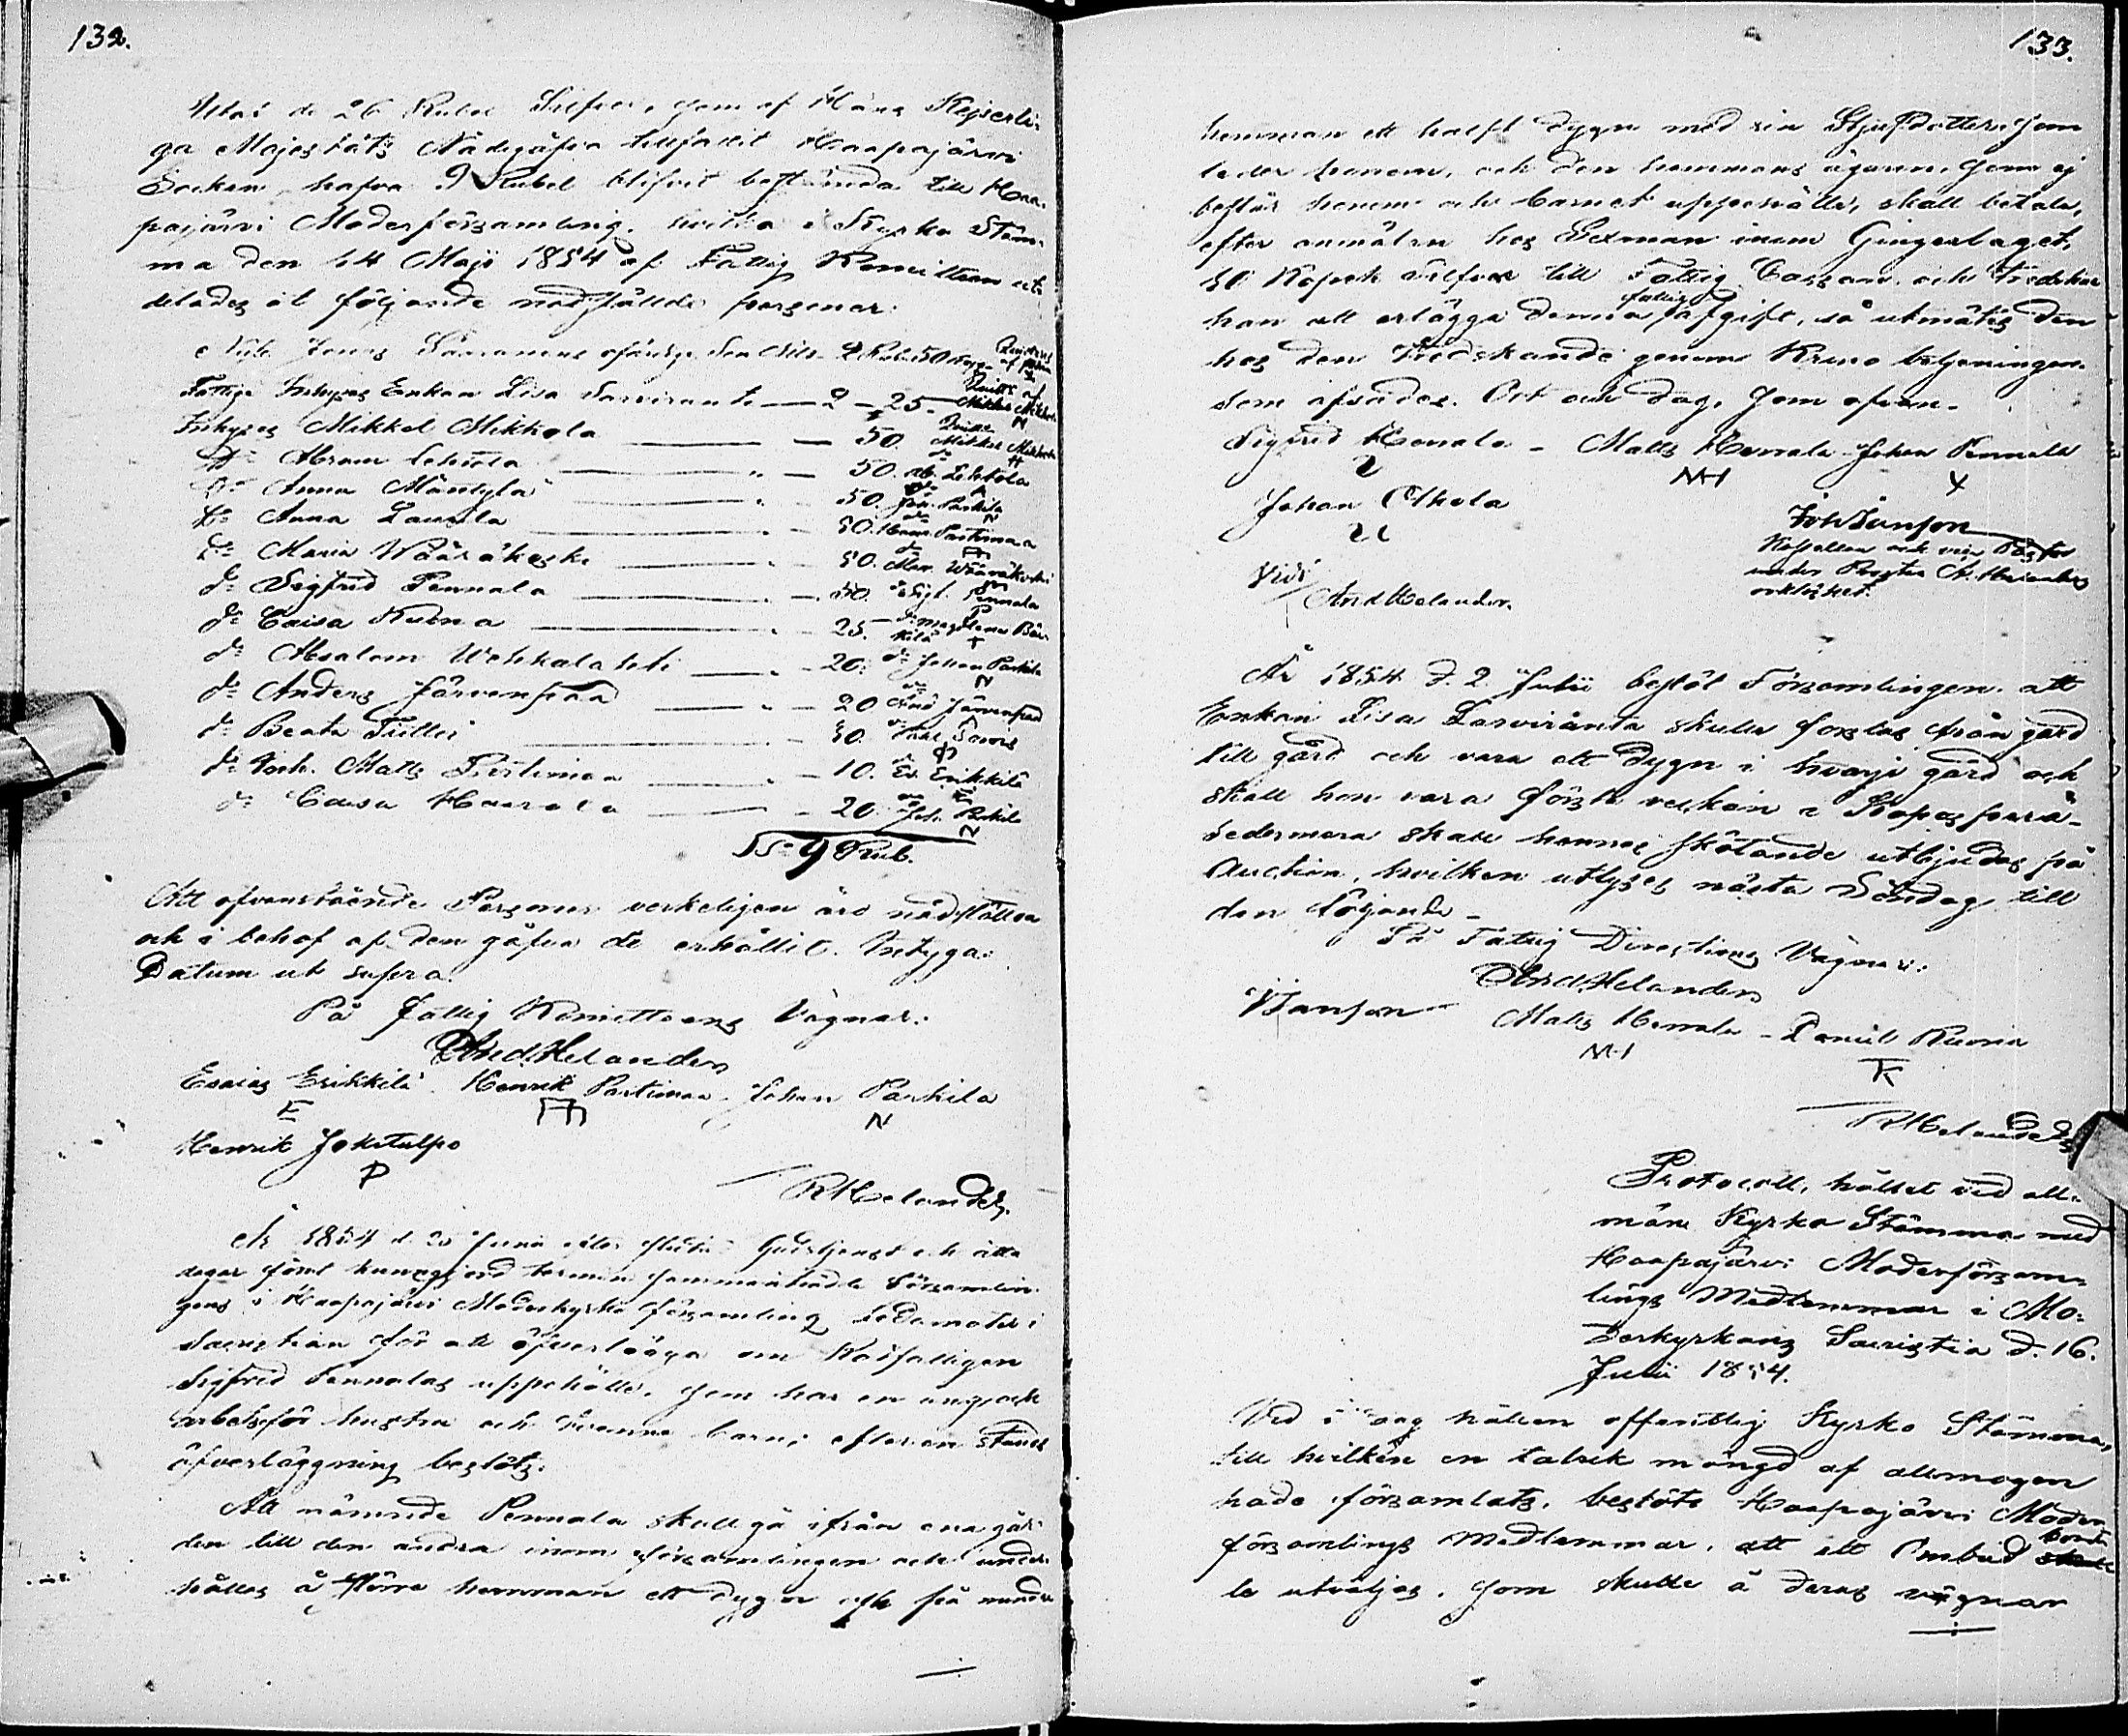 132.
Utaf de 26 Rubel Silfver, som af Hans Kejserli-
ga Majestäts Nådegåfva tillfallit Haapajärvi
Socken, hafva 9 Rubel blifvit bestämda till Haa-
pajärvi Moderförsamling. hvilka i Kyrko Stäm-
ma den 14 Maji 1854 af Fattig Komitten ut-
delades åt följande nödställde personer:
Jonas 2 Rub. 50 Kop.
Fattige Inhyses Enkan Lisa Sarviranta — 2 — 25.
Inhyses Mikkel Mikkola — 50. Mikkel Mikkola
do Abram Lehtola — 50. Ab. Lehtola
do Anna Mäntylä — 50. Joh. Parkila
do Anna Laurila — 50. Henr. Partimaa
do Maria Wääräkoski — 50. Mar. Wääräkoski
do Sigfrid Pennala — 50. Sigf. Pennala
do Caisa Kuona — 25.
do Absalom Wehkalahti — 20. do Johan Parkila
do Anders Järvenpää — 20. And Järvenpää
do Beata Tulli — 50.
do Joh. Matts Partimaa — 10. Es. Erikkilä
do Caisa Haarala — 20. Joh. Parkila
S:a 9 Rub.
Att ofvanstående Personer verkeligen äro nödställda
och i behof af den gåfva de erhållit. Intyga:
Datum ut supra.
På Fattig Komitteens Vägnar:
And Helander
Esaias Erikkilä. Henrik Partimaa. Johan Parkila
E N
Henrik Jokitulpo
P
R Helander.
År 1854 d. 25 Junii efter slutad Gudstjenst och åtta
dagar förut kungjord termin sammanträdde Församlin-
gens i Haapajärvi Moderkyrko församling ledamöter i
Sacristian för att öfverlägga om Rotfattigen
Sigfrid Pennalas uppehälle. som har en ung och
arbetsför hustru och tvenne barn; efter en stunds
öfverläggning beslöts:
Att nämnde Pennala skall gå ifrån ena går-
den till den andra inom församlingen och under-
hållas å större hemman ett dygn och på mindre
133.
hemman ett halft dygn med sin Stjufdotter, som
leder honom, och den hemmans ägaren, som ej
består honom och barnet uppehälle, skall betala,
efter anmälan hos Sexman inom Gingerlaget,
50 Kopek Silfver till Fattig Cassan. och tredskar
han att erlägga denna fattig afgift, så utmätes den
hos den Tredskande genom Krono betjeningen.
Som afsades. Ort och dag, som ofvan.
Sigfrid Henrala – Matts Henrala Johan Pennala
Johan Olkola
Joh Janson
Kapellan och vice Pastor
under Prosten
Vidi
And Helander.
År 1854 d. 2 Julii beslöt Församlingen att
Enkan Lisa Sarviranta skulle forslas från gård
till gård och vara ett dygn i hvarje gård och
skall hon vara första veckan i Kopas
sedermera skall hennes skötande utbjudas på
Auction, hvilken utlyses nästa Söndag till
den följande –
På Fattig Directions Vägnar:
And. Helander
J Janson Matts Henrala – Daniel Kuona
K
R Helander
Protocoll, hållet vid all-
män Kyrko Stämma med
Haapajärvi Moderförsam-
lings Medlemmar i Mo-
derkyrkans Sacristia d. 16.
Julii 1854.
Vid i dag hållen offentlig Kyrko Stämma,
till hvilken en talrik mängd af allmogen
hade församlats, beslöto Haapajärvi Moder
församlings Medlemmar, att ett Ombud borde
le utväljas, som skulle å deras vägnar